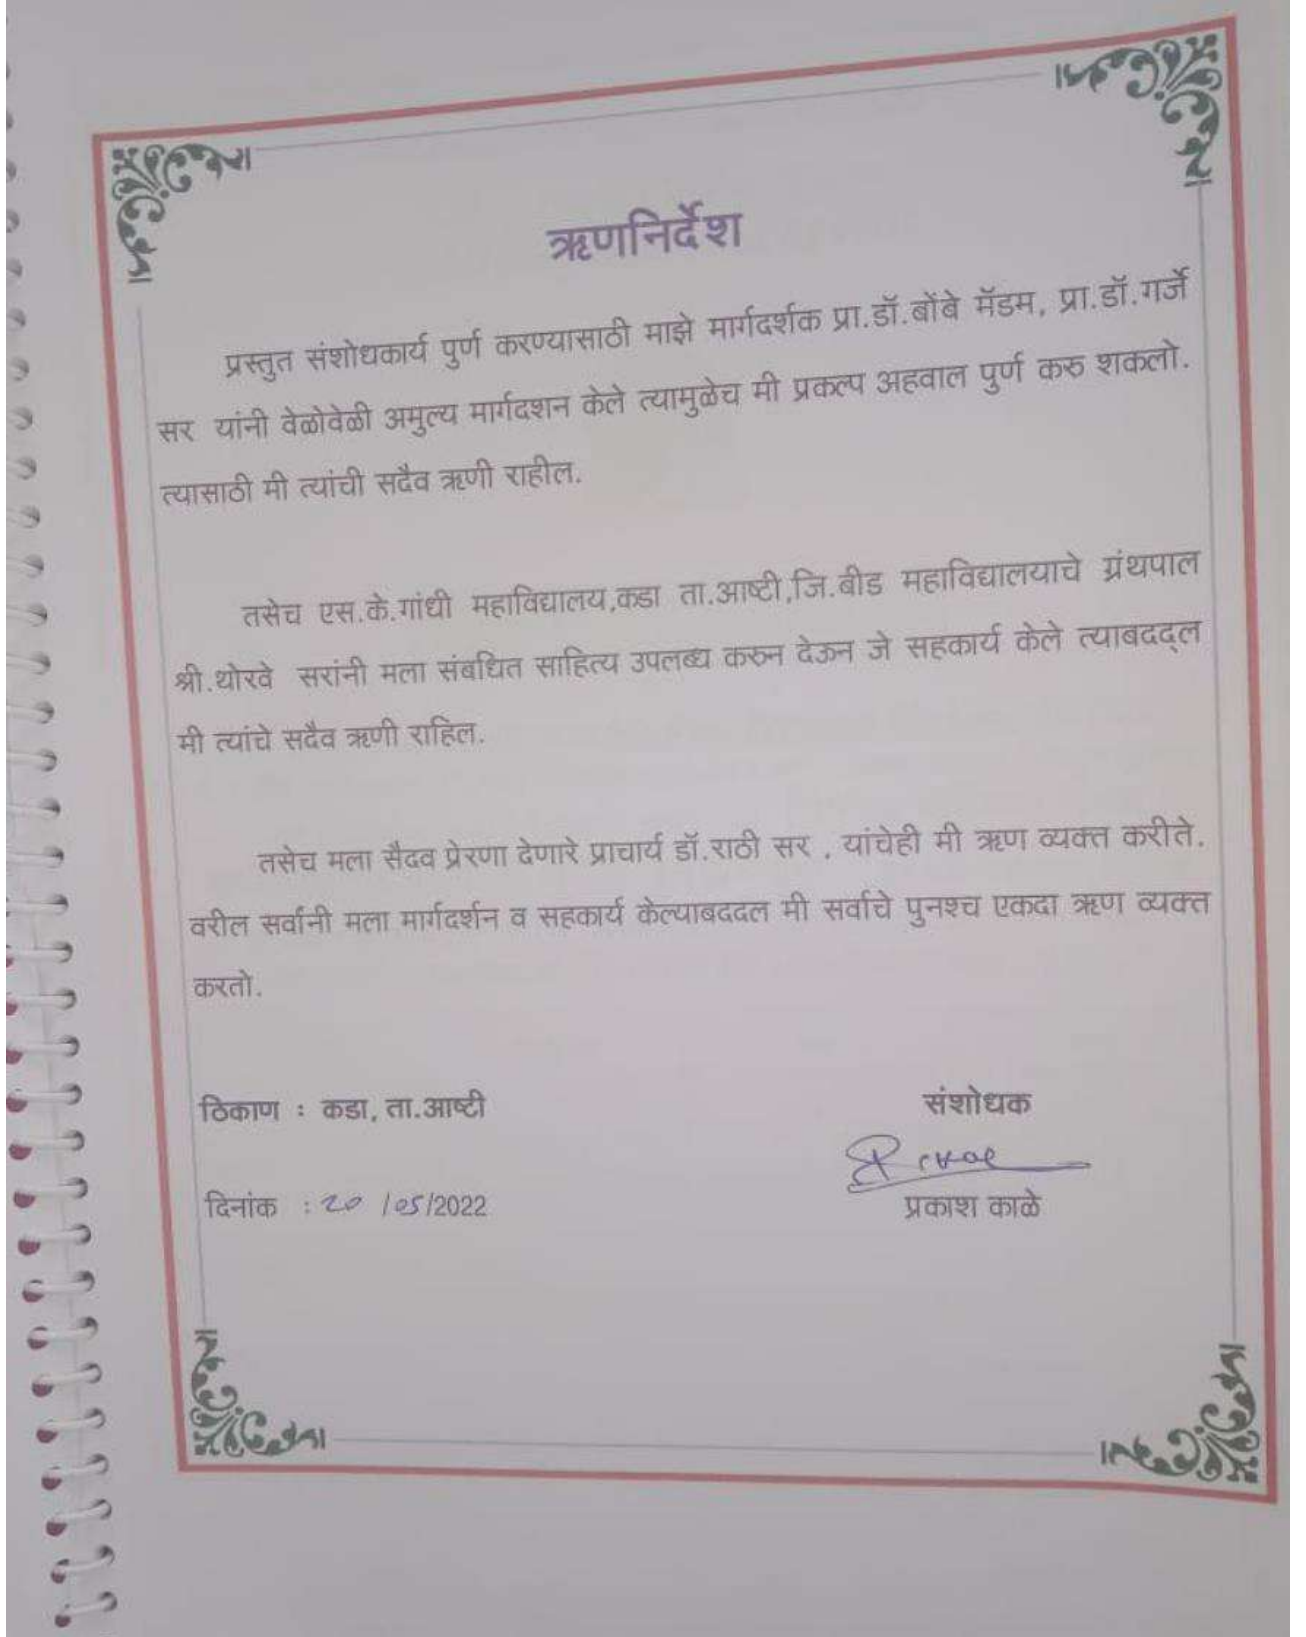 ऋणनिर्देश
प्रस्तुत संशोधकार्य पुर्ण करण्यासाठी माझे मार्गदर्शक प्रा.डॉ.बोंबे मॅडम, प्रा.डॉ.गर्जे
सर यांनी वेळोवेळी अमुल्य मार्गदशन केले त्यामुळेच मी प्रकल्प अहवाल पुर्ण करु शकलो.
त्यासाठी मी त्यांची सदैव ऋणी राहील.
तसेच एस.के.गांधी महाविद्यालय,कडा ता.आष्टी,जि.बीड महाविद्यालयाचे ग्रंथपाल
श्री.थोरवे सरांनी मला संबधित साहित्य उपलब्ध करुन देऊन जे सहकार्य केले त्याबदद्ल
मी त्यांचे सदैव ऋणी राहिल.
तसेच मला सैदव प्रेरणा देणारे प्राचार्य डॉ.राठी सर . यांचेही मी ऋण व्यक्त करीते.
वरील सर्वानी मला मार्गदर्शन व सहकार्य केल्याबददल मी सर्वाचे पुनश्च एकदा ऋण व्यक्त
करतो.
ठिकाण : कडा, ता.आष्टी
संशोधक
दिनांक : 20 /05/2022
प्रकाश काळे